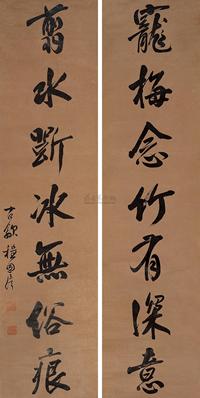 寵梅念竹有深意
翦水斲冰無俗痕
古歙程